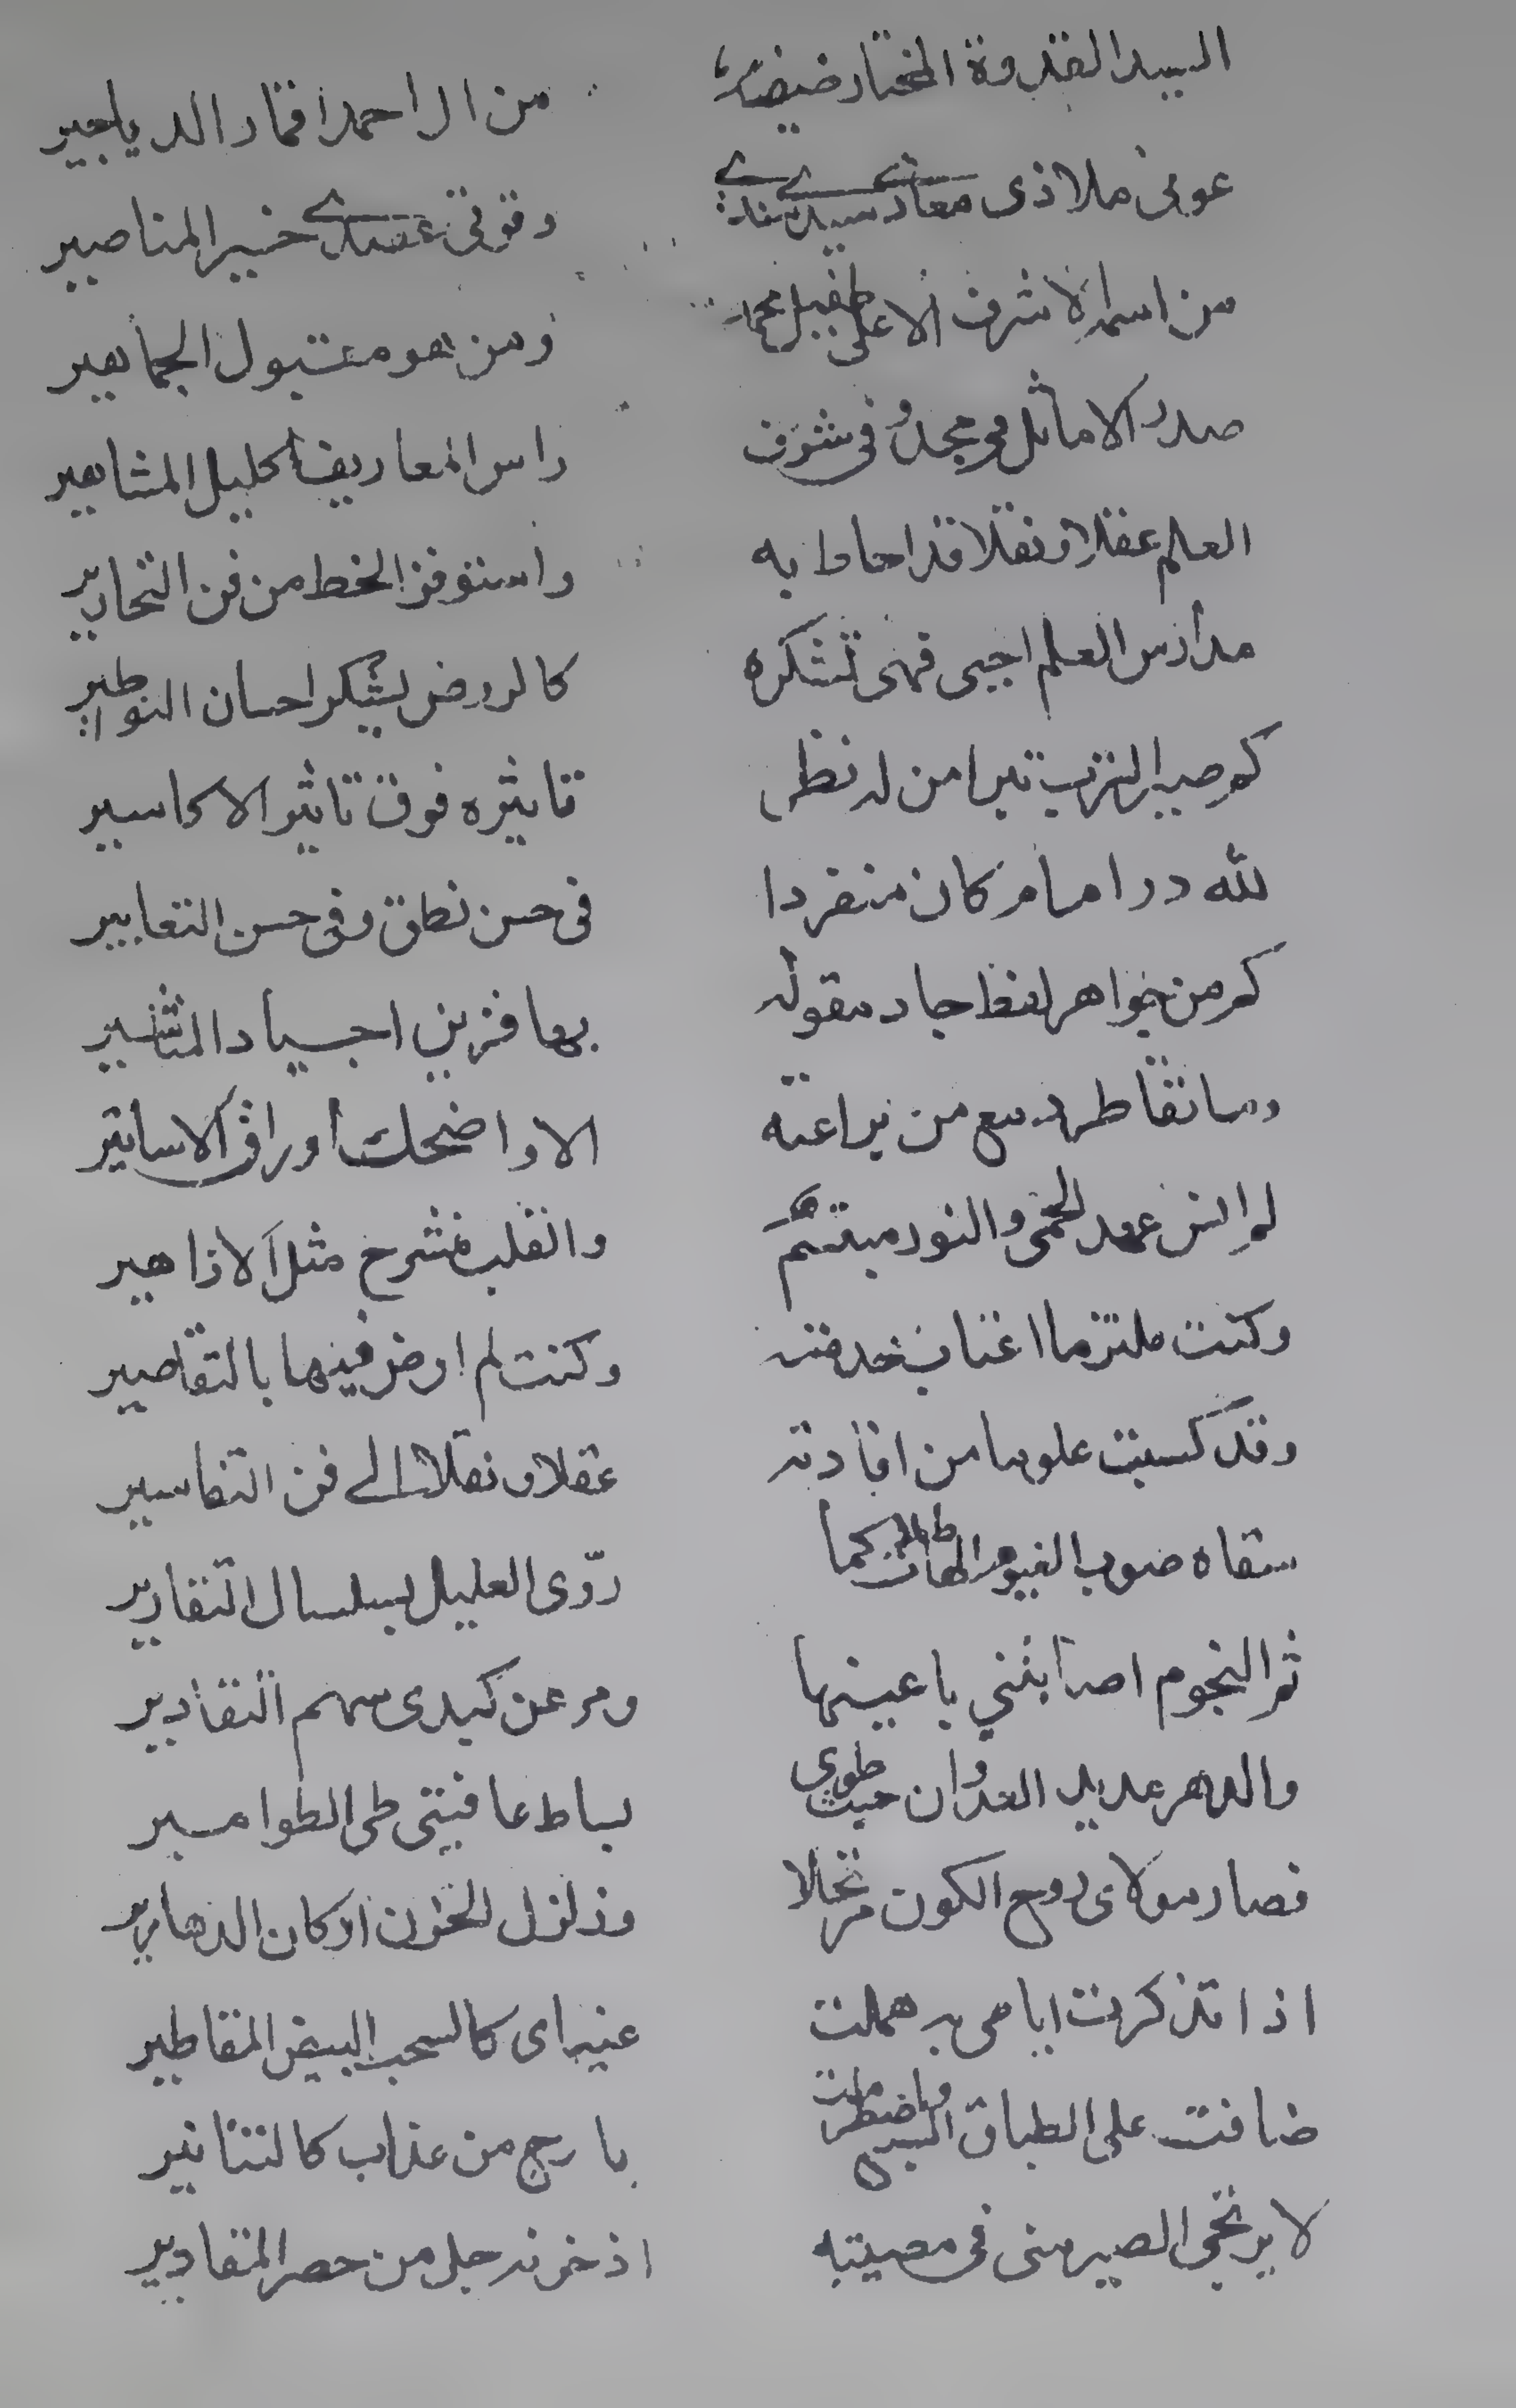 السيد القدوة المختار ضيضئ من ال احمد اقمار الدياجير
عونى ملاذى معاذى سيدى سندى وقوتى عضدى خير المناصير
من اسمه الاشرف الاعلى طفيل محمد ومن هو مقبول الجماهير
صدر الاماثل فى مجد وفى شرف راس المعاريف اكليل المشاهير
العلم عقلا ونقلا قد احاط به واستوفز الخط من فن التحارير
مدارس العلم احيى فهى تشكره كالروض يشكر احسان النواطير
كم صير الترب تبرا من له نظر تاثيره فوق تاثير الاكاسير
لله در امام كان منفردا فى حسن نطق وفى حسن التعابير
كم من جواهر لفظ جاد مقوله بها فزين اجياد
وما تقاطر دمع من يراعته الا واضحك اوراق الاساتير
لم انس عهد الحمى والنور مبتسم والقلب منشرح مثل الازاهير
وكنت ملتزما اعتاب خدمته وكنت لم ارض فيها بالتقاصير
وقد كسبت علوما من افادته عقلا ونقلا الى فن التفاسير
سقاه صوب الغيوم كما روّى العليل بسلسال التقارير
ثم النجوم اصابتني باعينها ومر عن كبدى سهم التقادير
والدهر عديد العدوان حيث طوى بساط عافيتى طى الطوامير
فصار مولاى روح الكون مرتحلا وزلزل الحزن اركان الدهارير
اذا تذكرت ايامى به هملت عيناى كالسحب البيض المقاطير
ضاقت على الطباق السبع واضطرمت بارج من عذاب كالتنانير
لا يرتجى الصبر منى فى مصيبته اذ حزنه جل من حصر المقادير